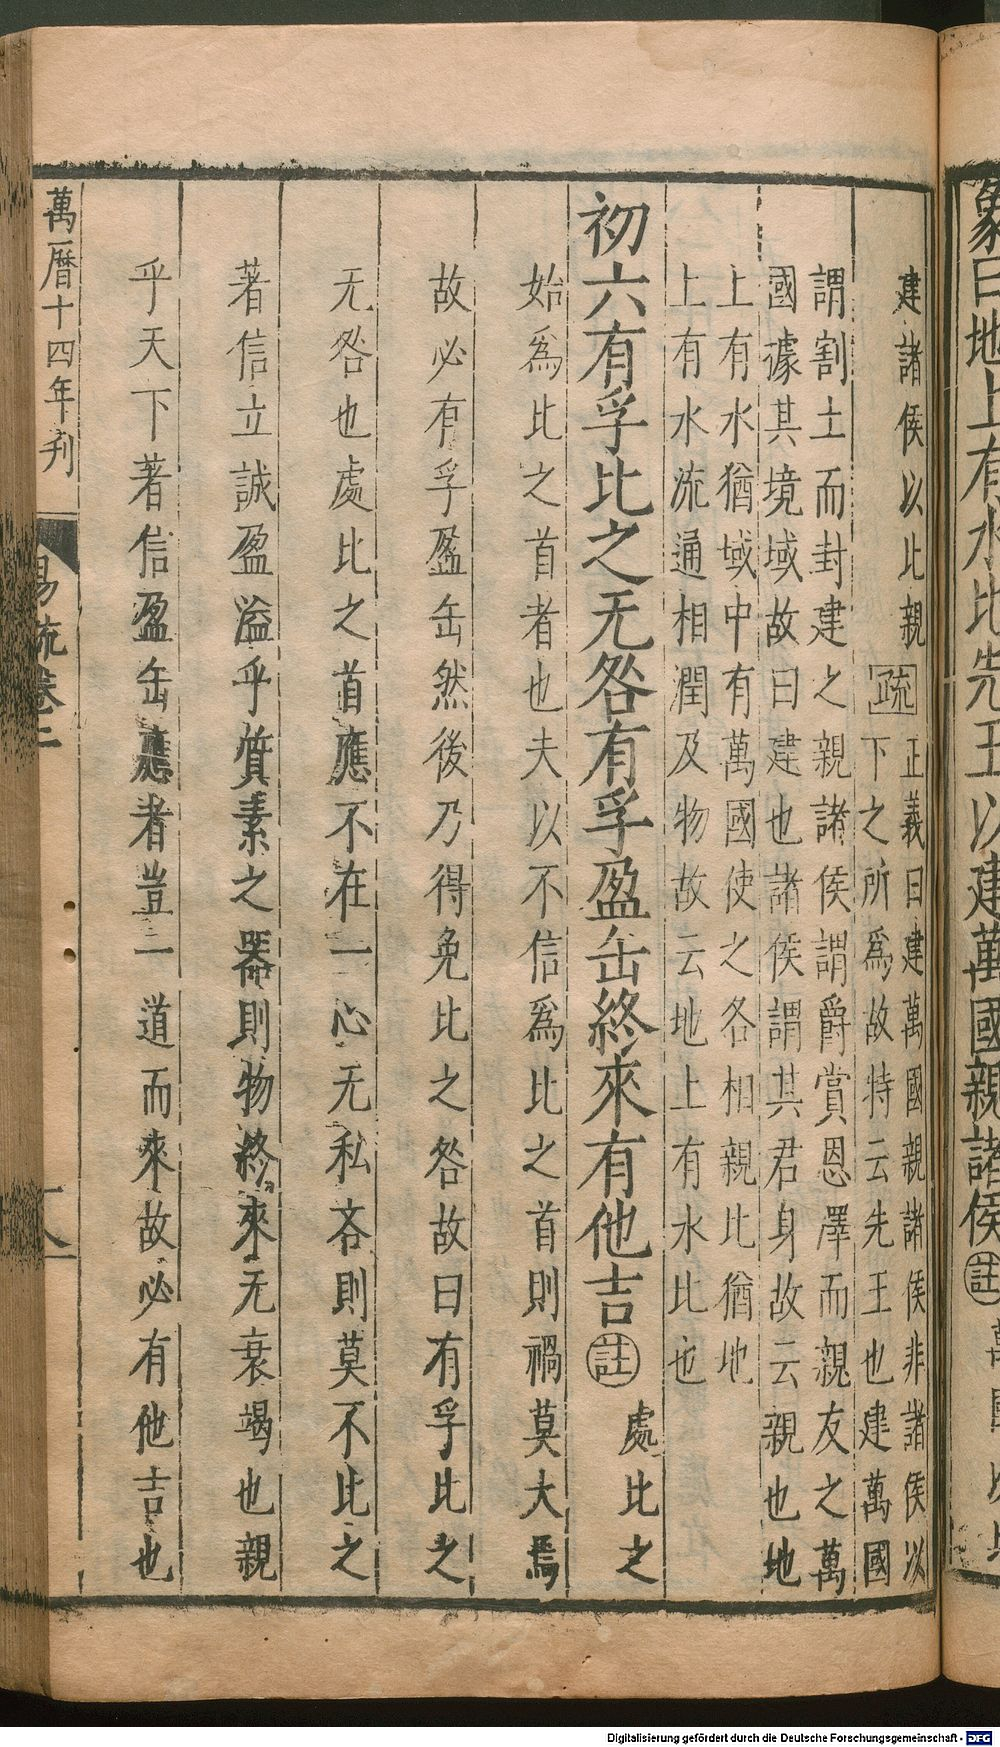 象曰地上有水比先王以建萬國親諸侯註
建諸侯以比親疏正義曰建萬國親諸侯非諸侯以
下之所爲故特云先王也建萬國
謂割土而封建之親諸侯謂爵賞恩澤而親友之萬
國據其境域故曰建也諸侯謂其君身故云親也地
上有水猶域中有萬國使之各相親比猶地
上有水流通相潤及物故云地上有水比也
初六有孚比之无咎有孚盈缶終來有他吉註處比之
始爲比之首者也夫以不信爲比之首則禍莫大焉
故必有孚盈缶然後乃得免比之咎故曰有孚比之
无咎也處比之首應不在一心无私吝則莫不比之
著信立誠盈溢乎質素之器則物終來无衰竭也親
乎天下著信盈缶應者豈一道而來故必有他吉也
萬曆十四年刋
易疏卷二
Digitalisierung gefördert durch die Deutsche Forschungsgemeinschaft - DFG